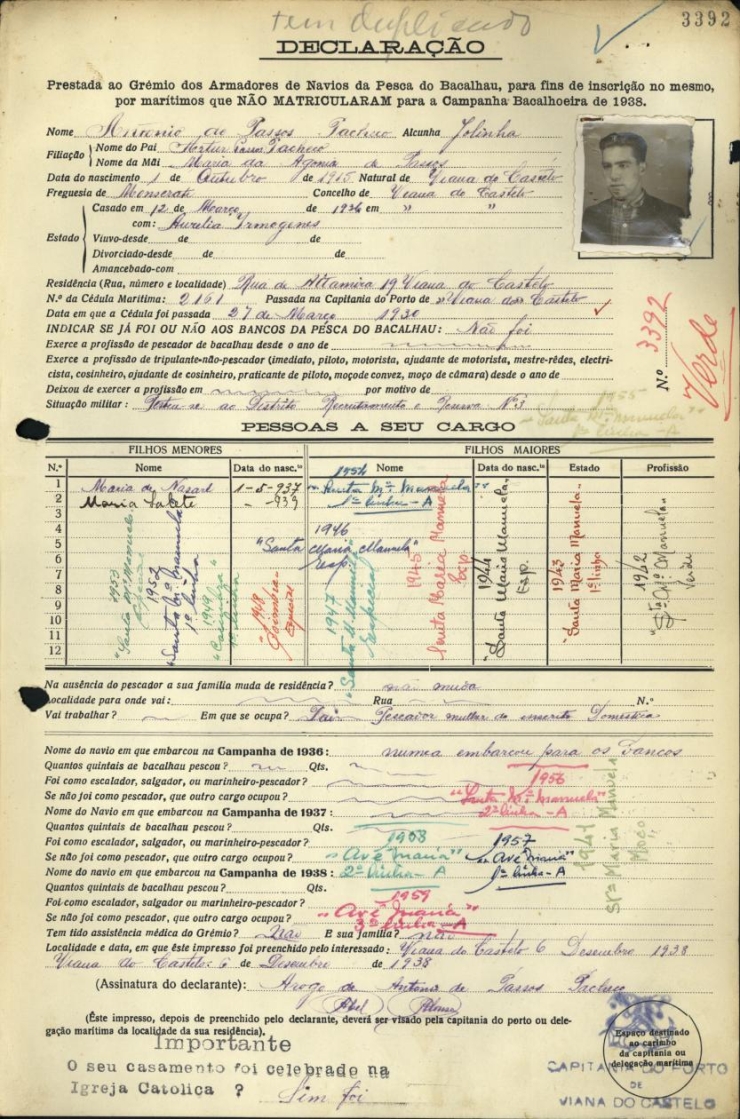 tem duplicado
3392
DECLARAÇÃO
Prestada ao Grémio dos Armadores de Navios da Pesca do Bacalhau, para fins de inscrição no mesmo,
por marítimos que NÃO MATRICULARAM para a Campanha Bacalhoeira de 1938.
Nome Antonio de Passos Pacheco Alcunha Jolinha
Filiação Nome do Pai Artur Pacheco
Nome da Mãi Maria da Agonia de Passos
Data do nascimento 1 de Outubro de 1915 Natural de Viana do Castelo
Freguesia de Monserrate Concelho de Viana do Castelo
Estado
Casado em 12 de Março de 1936 em " "
com: Aurelia Irmogenes
Viuvo-desde de de
Divorciado-desde de de
Amancebado-com
Residência (Rua, número e localidade) Rua de Altamira 19 Viana do Castelo
N.º da Cédula Marítima: 2161 Passada na Capitania do Porto de Viana do Castelo
Data em que a Cédula foi passada 27 de Março 1930
INDICAR SE JÁ FOI OU NÃO AOS BANCOS DA PESCA DO BACALHAU: Não foi
Exerce a profissão de pescador de bacalhau desde o ano de
Exerce a profissão de tripulante-não-pescador (imediato, piloto, motorista, ajudante de motorista, mestre-rêdes, electri-
cista, cosinheiro, ajudante de cosinheiro, praticante de piloto, moço de convez, moço de câmara) desde o ano de
Deixou de exercer a profissão em por motivo de
Situação militar: ao Distrito Recrutamento e Reserva Nº 3
N.º 3392
Verde
1955
"Santa Mª Manuela"
1ª linha - A
PESSOAS A SEU CARGO
FILHOS MENORES FILHOS MAIORES
N.º Nome Data do nasc.to Nome Data do nasc.to Estado Profissão
1 Maria de Nazaré 1-5-937
2 Maria Salete - - 939
3
4
5
6
7
8
9
10
11
12
1954
"Santa Mª Manuela"
1ª linha - A
1946
"Santa Maria Manuela"
Esp.
1953
"Santa Mª Manuela"
1952
"Santa Mª Manuela"
1ª linha
1949
1ª linha
1948
Coimbra
Especial
1947
"Santa M. Manuela"
Especial
1945
Santa Maria Manuela
Esp.
1944
"Santa Maria Manuela"
Esp.
1943
"Santa Maria Manuela"
1ª linha
1942
"Stª Mª Manuela"
Verde
Na ausência do pescador a sua família muda de residência? não muda
Localidade para onde vai: Rua N.º
Vai trabalhar? Em que se ocupa? Pai Pescador mulher do inscrito Domestica
Nome do navio em que embarcou na Campanha de 1936: nunca embarcou para os bancos
Quantos quintais de bacalhau pescou? Qts.
Foi como escalador, salgador, ou marinheiro-pescador?
Se não foi como pescador, que outro cargo ocupou?
Nome do Navio em que embarcou na Campanha de 1937:
Quantos quintais de bacalhau pescou? Qts.
Foi como escalador, salgador, ou marinheiro-pescador?
Se não foi como pescador, que outro cargo ocupou?
Nome do navio em que embarcou na Campanha de 1938:
Quantos quintais de bacalhau pescou? Qts.
Foi como escalador, salgador ou marinheiro-pescador?
Se não foi como pescador, que outro cargo ocupou?
1956
"Santa Mª Manuela"
2ª linha - A
1958
"Avé Maria"
2ª linha - A
1957
"Avé Maria"
1ª linha - A
1959
"Avé Maria"
3ª linha - A
1941
Stª Maria Manuela
Moço
Tem tido assistência médica do Grémio? Não E sua família? não
Localidade e data, em que êste impresso foi preenchido pelo interessado: Viana do Castelo 6 Desembro 1938
Viana do Castelo: 6 de Desembro de 1938
(Assinatura do declarante): Arogo de Antonio de Passos Pacheco
Abel
(Êste impresso, depois de preenchido pelo declarante, deverá ser visado pela capitania do porto ou dele-
gação marítima da localidade da sua residência).
Espaço destinado
ao carimbo
da capitania ou
delegação marítima
CAPITANIA DO PORTO
DE
VIANA DO CASTELO
Importante
O seu casamento foi celebrado na
Igreja Catolica ? Sim foi